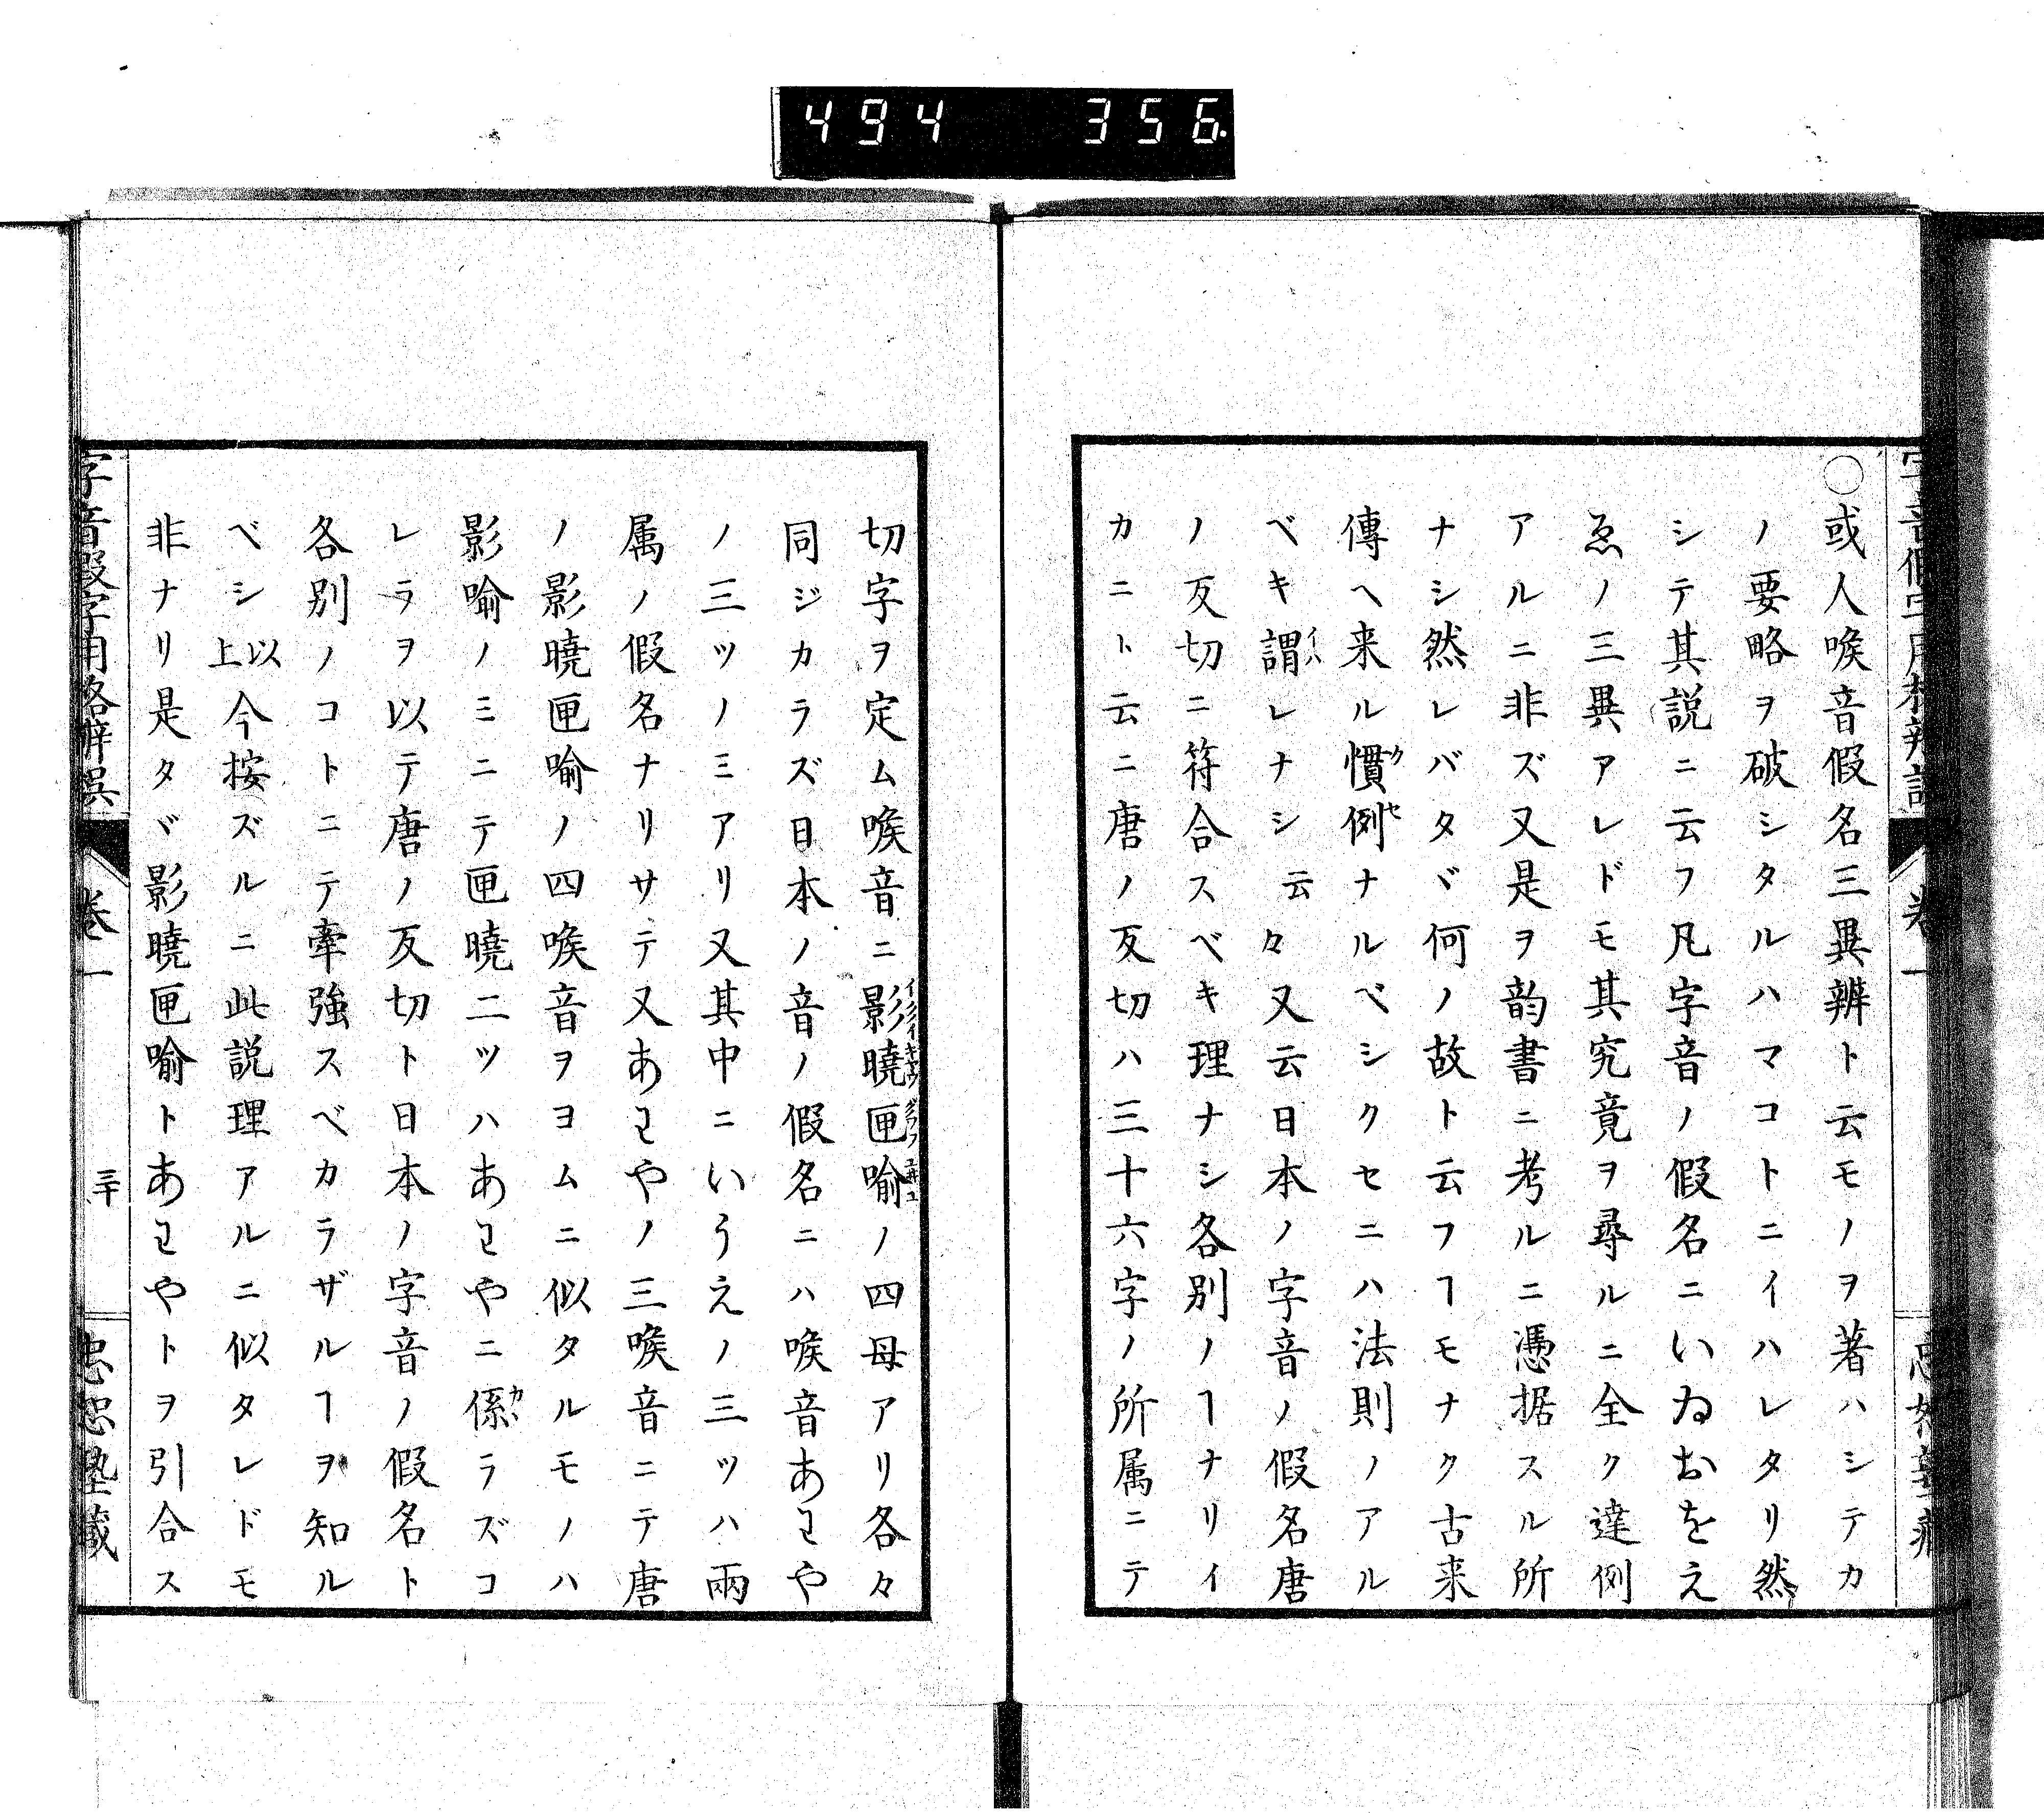 494 356
○或人喉音假名三異辨ト云モノヲ著ハシテカ
ノ要略ヲ破シタルハマコトニイハレタリ然
シテ其説ニ云フ凡字音ノ假名ニいゐおをえ
ゑノ三異アレドモ其究竟ヲ尋ルニ全ク達例
アルニ非ズ又是ヲ韵書ニ考ルニ憑据スル所
ナシ然レバタヾ何ノ故ト云フヿモナク古来
傳ヘ来ル慣例ナルベシクセニハ法則ノアル
ベキ謂レナシ云々又云日本ノ字音ノ假名唐
ノ反切ニ符合スベキ理ナシ各別ノヿナリイ
カニト云ニ唐ノ反切ハ三十六字ノ所属ニテ
切字ヲ定ム喉音ニ影曉匣喻ノ四母アリ各々
同ジカラズ日本ノ音ノ假名ニハ喉音あわや
ノ三ツノミアリ又其中ニいうえノ三ツハ兩
属ノ假名ナリサテ又あわやノ三喉音ニテ唐
ノ影曉匣喻ノ四喉音ヲヨムニ似タルモノハ
影喻ノミニテ匣曉二ツハあわやニ係ラズコ
レラヲ以テ唐ノ反切ト日本ノ字音ノ假名ト
各別ノコトニテ牽強スベカラザルヿヲ知ル
ベシ以上今按ズルニ此説理アルニ似タレドモ
非ナリ是タヾ影曉匣喻トあわやトヲ引合ス
字音假字用格辨誤 卷一 三十 忠恕塾藏